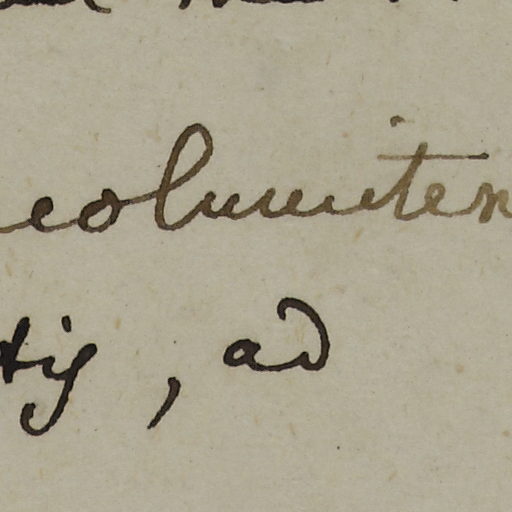 columiten
tis, ad